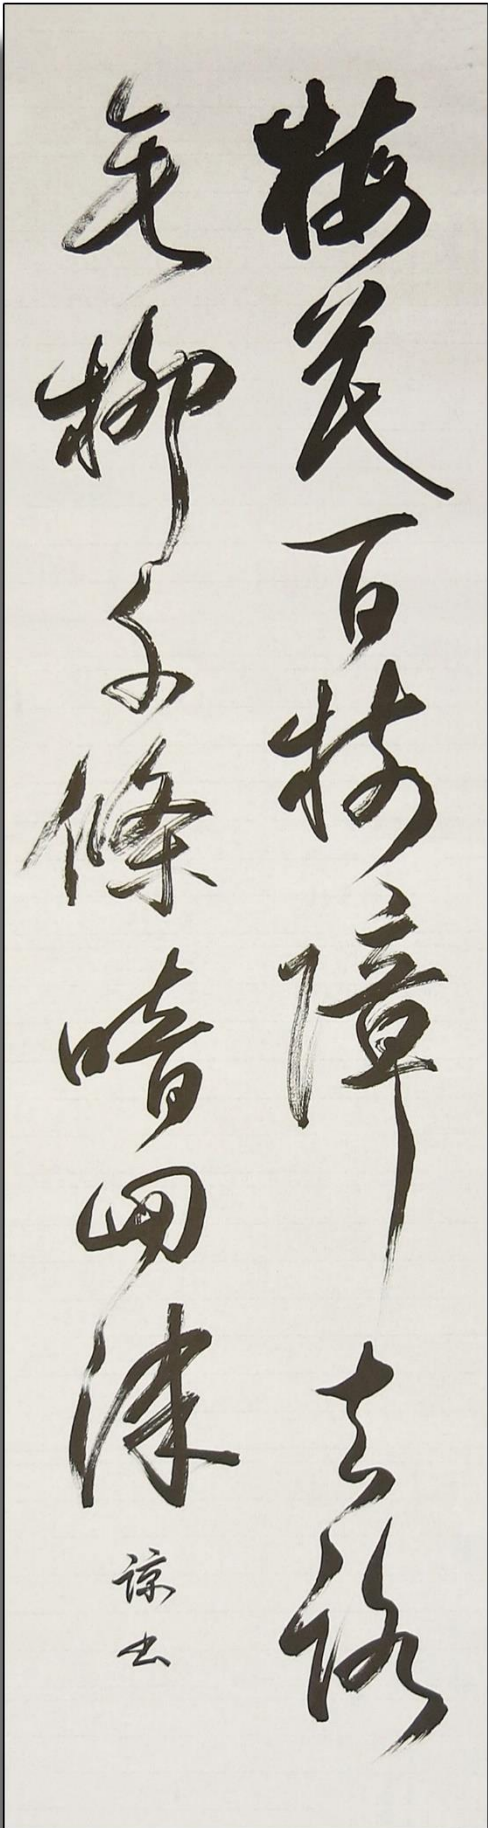 梅花百樹障去路
垂柳千條暗回津
諒書